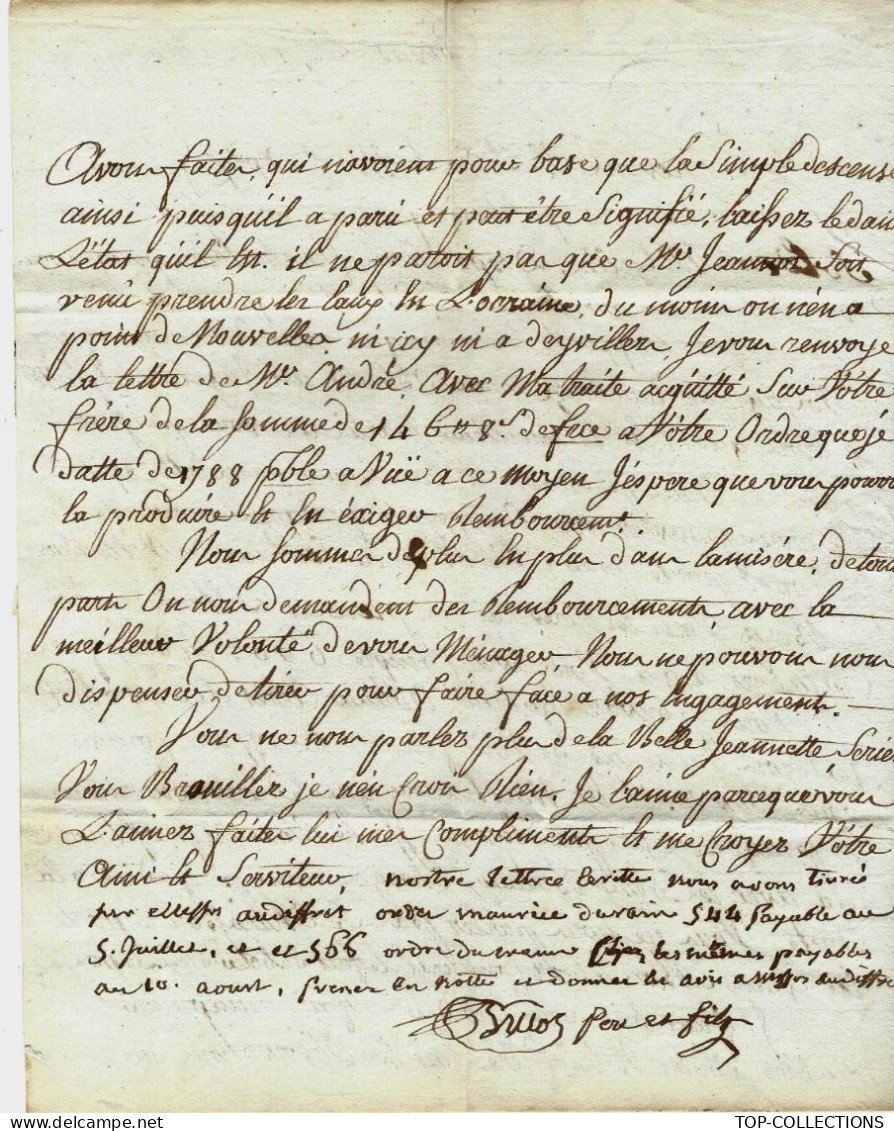 Avous faites, qui n'avoient pour base que la Simple descense
ainsi puisqu'il a paru et peut être Signifié, laissez le dans
L'état qu'il Est. il ne paroit pas que Mr. Jeannot Soit
venû prendre les Eaux En Lorraine, du moins on n'en a
point de Nouvelles, ni icy ni a deyviller, Je vous renvoye
la lettre de Mr. André, Avec Ma traite acquitté Sur Vôtre
frère de la Somme de 146tt 8s. de fce a Vôtre Ordre que je
datte de 1788 pble a Vuë a ce moyen J'espere que vous pouvez
la produire Et En éxiger Rembourcemt.
Nous Sommes de plus En plus dans la misére, de tou
parts On nous demandent des Rembourcements, avec la
meilleur Volonté de vous Ménager, Nous ne pouvons nous
dispenser de tirer pour faire face a nos Engagement.
Vous ne nous parlez plus de la Belle Jeannette, Seriez
Vous Brouiller je n'en Crois Rien. Je l'aime parceque vous
L'aimez faites lui mes Compliments Et me Croyez Vôtre
Ami Et Serviteur, nostre lettre Ecritte nous avons tirré
par audiffret ordre maurice 544 payable au
5. Juillet, et et 566 ordre du meme les mêmes payables
au 10. aoust, prenez En notte et donnez En avis a audiffret
pere et fils
TOP-COLLECTIONS